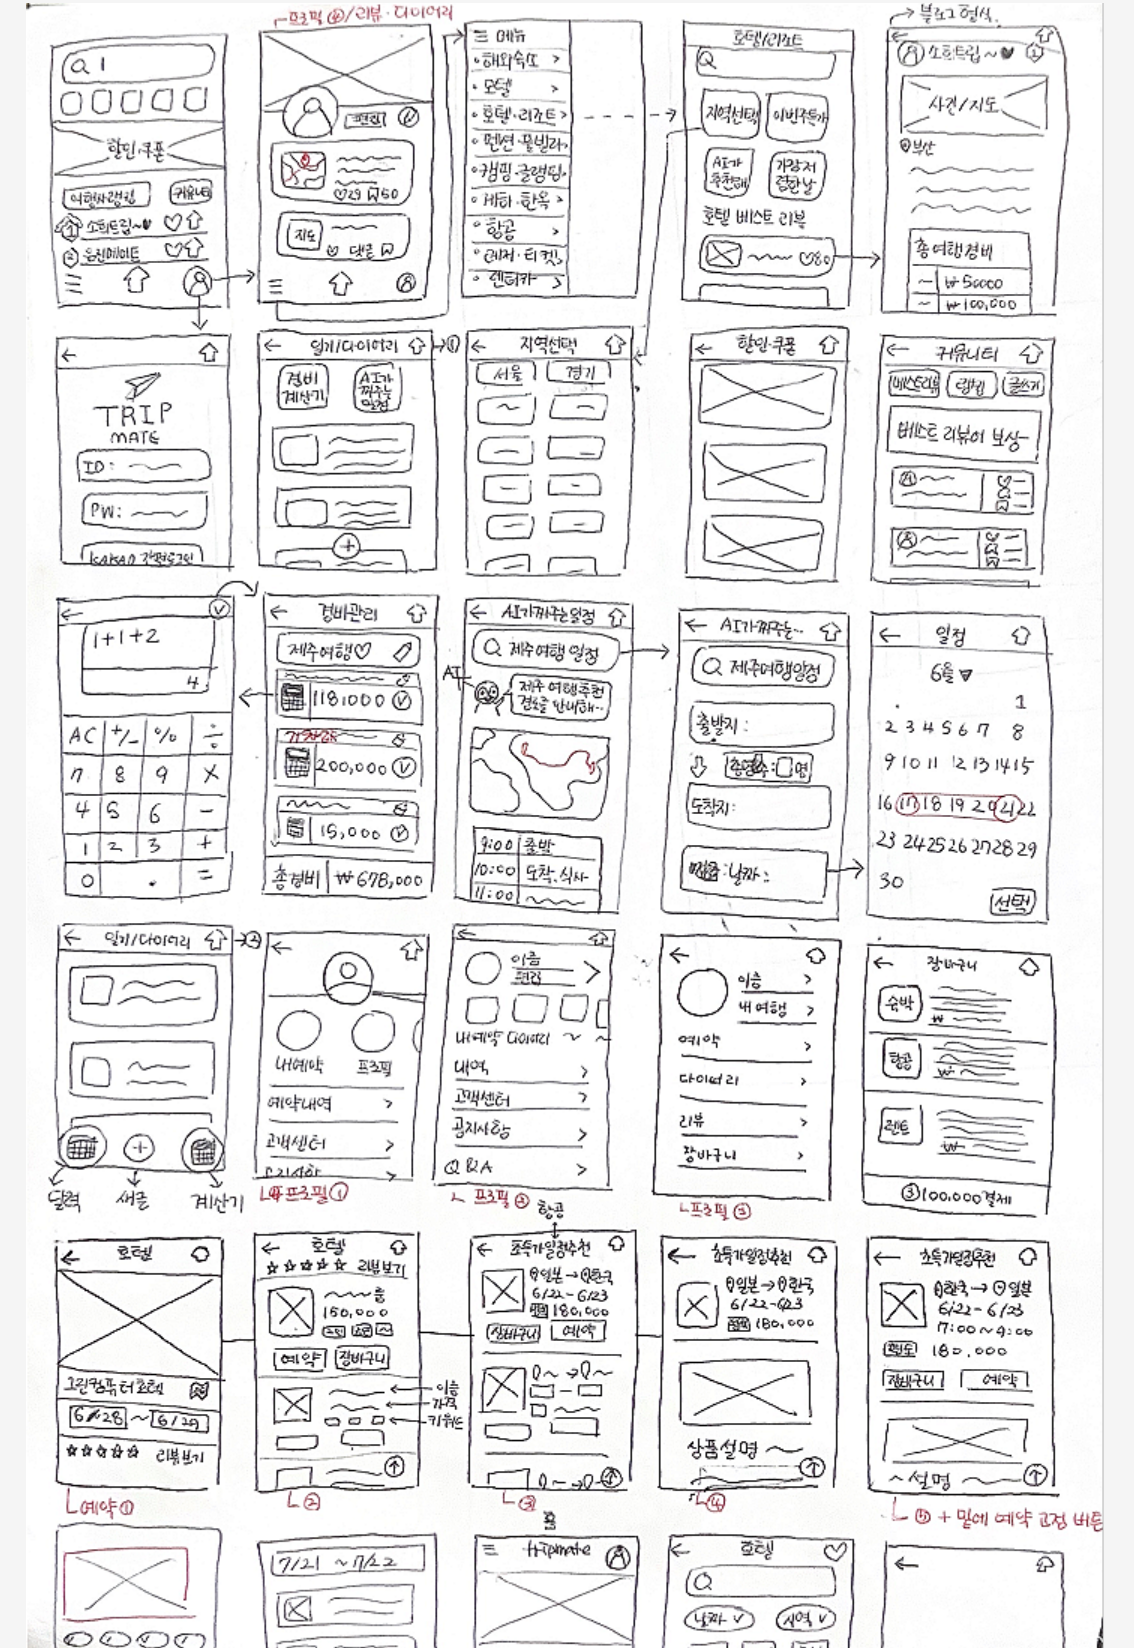 프로필④/리뷰·다이어리
할인·쿠폰
여행자랭킹
커뮤니티
소희트립~♥
편집
♡29
50
지도
댓글
메뉴
해외숙소 >
모텔 >
호텔·리조트 >
펜션·풀빌라 >
캠핑·글램핑 >
게하·한옥 >
항공 >
레저·티켓 >
렌터카 >
호텔/리조트
지역선택
이번주특가
AI가
추천해
가장저
렴한날
호텔 베스트 리뷰
♡80
→ 블로그형식.
소희트립~♥
사진/지도
부산
총여행경비
~ ₩50000
~ ₩100,000
←
TRIP
MATE
ID:
PW:
KAKAO 간편로그인
← 일기/다이어리 →①
경비
계산기
AI가
짜주는
일정
+
← 지역선택
서울
경기
← 할인·쿠폰
← 커뮤니티
베스트리뷰
랭킹
글쓰기
베스트 리뷰어 보상
←
1+1+2
4
AC +/- % ÷
7 8 9 ×
4 5 6 -
1 2 3 +
0 . =
← 경비관리
제주여행♡
118,000
200,000
15,000
총경비 ₩678,000
← AI가짜주는일정
제주여행 일정
AI
제주 여행추천
경로를 안내해..
9:00 출발
10:00 도착.식사
11:00
← AI가짜주는...
제주여행일정
출발지:
총명수: 명
도착지:
날짜:
← 일정
6월 ▼
1
2 3 4 5 6 7 8
9 10 11 12 13 14 15
16 17 18 19 20 21 22
23 24 25 26 27 28 29
30
선택
← 일기/다이어리 →②
달력
+
새글
계산기
←
내예약
프로필
예약내역 >
고객센터 >
공지사항
프로필①
←
이름
편집
>
내예약 다이어리
내역 >
고객센터 >
공지사항 >
Q&A >
프로필②
←
이름 >
내여행 >
예약 >
다이어리 >
리뷰 >
장바구니 >
프로필③
← 장바구니
숙박
₩
항공
₩
렌트
₩
③100,000결제
← 호텔
그린컴퓨터호텔
6/28 ~ 6/29
☆☆☆☆☆ 리뷰보기
예약①
← 호텔
☆☆☆☆☆ 리뷰보기
~~룸
150,000
예약
장바구니
이름
가격
키워드
②
항공
← 초특가일정추천
일본→한국
6/22-6/23
180,000
장바구니
예약
③
← 초특가일정추천
일본→한국
6/22-6/23
180,000
상품설명 ~
④
← 초특가일정추천
한국→일본
6/22-6/23
7:00~9:00
편도 180,000
장바구니
예약
~설명
⑤ + 밑에 예약 고정 버튼
7/21 ~ 7/22
홈
tripmate
← 호텔 ♡
날짜 ∨
지역 ∨
←